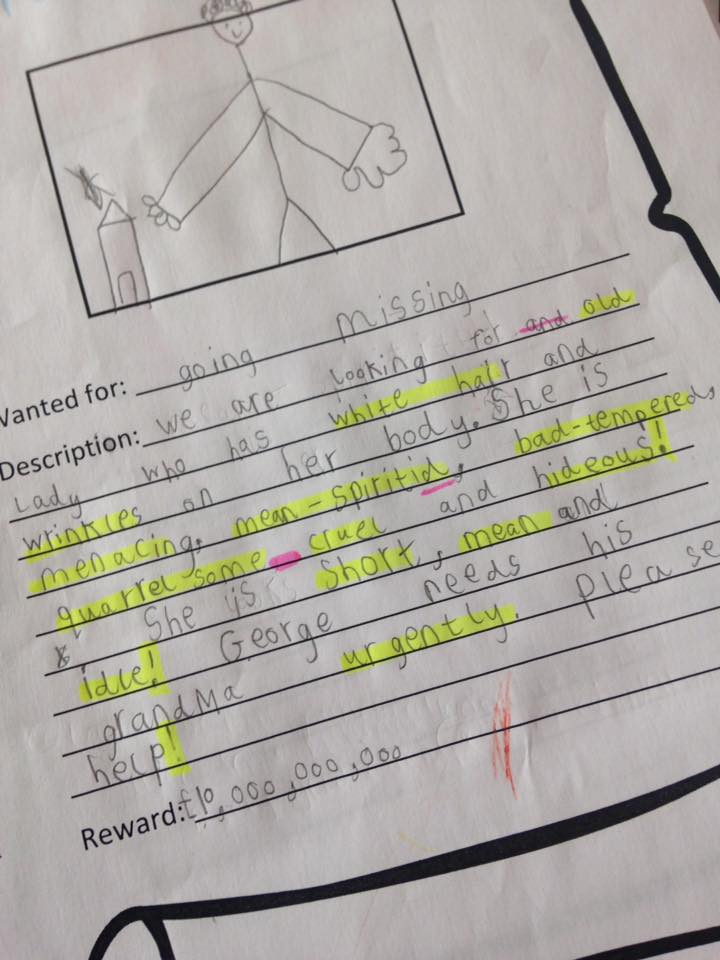 Wanted for: going missing
Description: we are looking for and old
Lady who has white hair and
wrinkles on her body. She is
menacing, mean-spiritid, bad-tempered,
quarrel some cruel and hideous!
She is short, mean and
idle! George needs his
grandma urgently. please
help!
Reward: £10,000,000,000